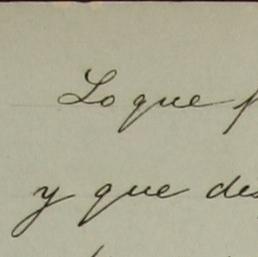 Lo que
y que